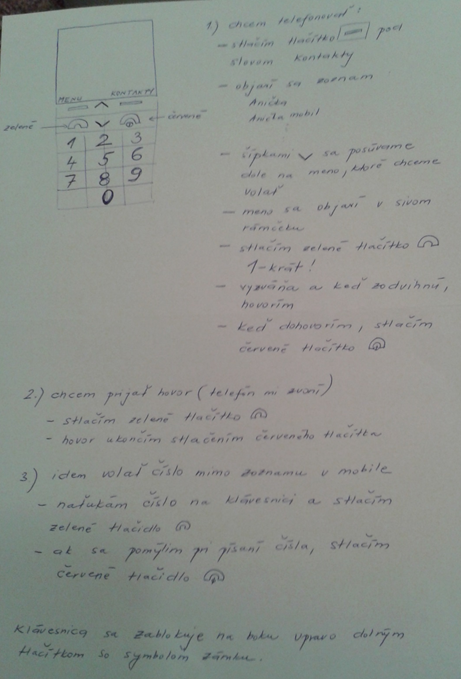 MENU KONTAKTY
zelené červené
1 2 3
4 5 6
7 8 9
0
1.) chcem telefonovať:
- stlačím tlačítko pod
slovom kontakty
- objaví sa zoznam
Anička
Anička mobil
- šípkami sa posúvame
dole na meno, ktoré chceme
volať
- meno sa objaví v sivom
rámčeku
- stlačím zelené tlačítko
1-krát!
- vyzváňa a keď zodvihnú,
hovorím
- keď dohovorím, stlačím
červené tlačítko
2.) chcem prijať hovor (telefón mi zvoní)
- stlačím zelené tlačítko
- hovor ukončím stlačením červeného tlačítka
3.) idem volať číslo mimo zoznamu v mobile
- naťukám číslo na klávesnici a stlačím
zelené tlačidlo
- ak sa pomýlim pri písaní čísla, stlačím
červené tlačidlo
Klávesnica sa zablokuje na boku vpravo dolným
tlačítkom so symbolom zámku.